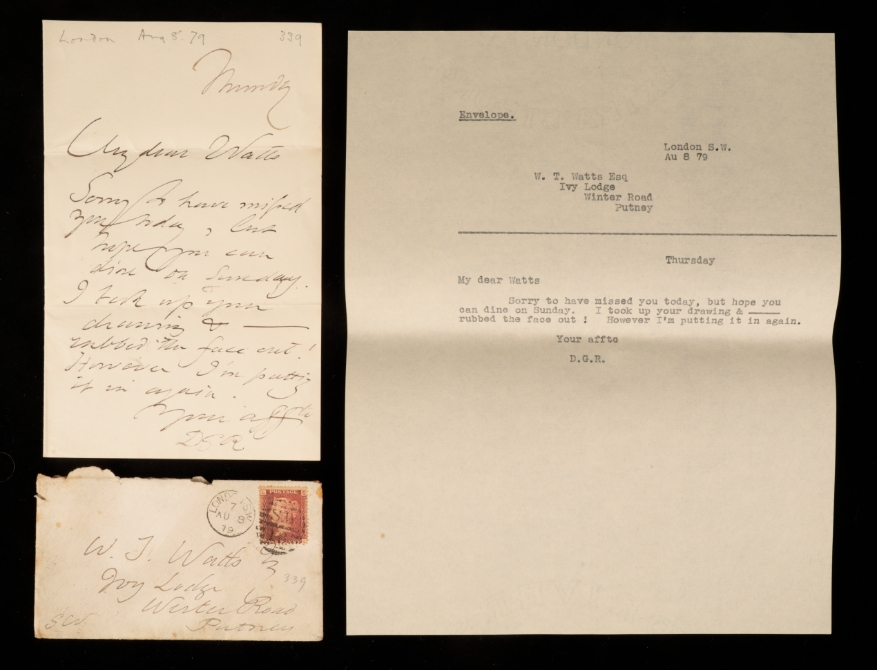 London Aug 8. 79 339
Thursday
My dear Watts
Sorry to have missed
you today, but
hope you can
dine on Sunday.
I took up your
drawing & —
rubbed the face out!
However I'm putting
it in again.
Your affte
DGR
LONDON S.W
7
AU 8
79
POSTAGE
W. T. Watts Esq
339
Ivy Lodge
Werter Road
Putney
S.W.
Envelope.
London S.W.
Au 8 79
W. T. Watts Esq
Ivy Lodge
Winter Road
Putney
Thursday
My dear Watts
Sorry to have missed you today, but hope you
can dine on Sunday. I took up your drawing & ——
rubbed the face out ! However I'm putting it in again.
Your affte
D.G.R.